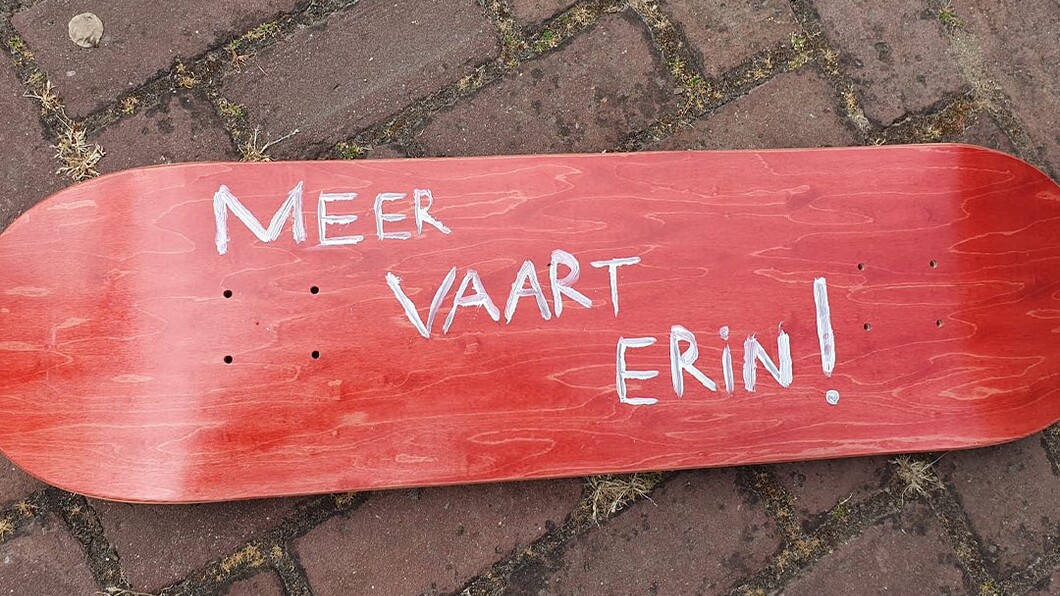 MEER
VAART
ERiN!